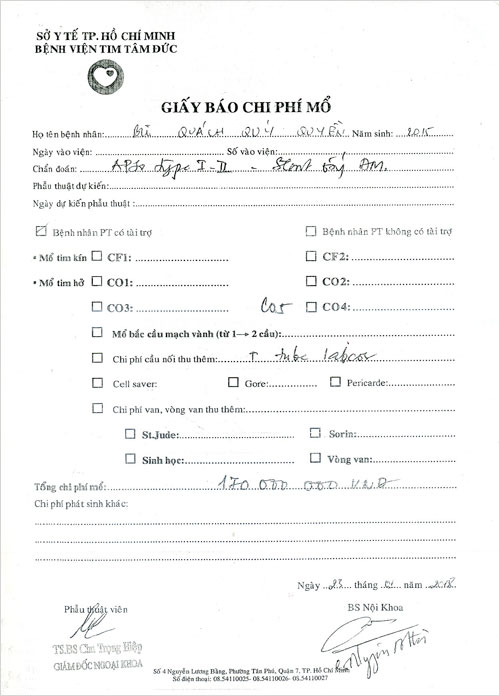 SỞ Y TẾ TP. HỒ CHÍ MINH
BỆNH VIỆN TIM TÂM ĐỨC
GIẤY BÁO CHI PHÍ MỔ
Họ tên bệnh nhân: BÙI QUÁCH QUÝ QUYỀN Năm sinh: 2015
Ngày vào viện: Số vào viện:
Chẩn đoán: APSO type I-II - Stent ống ĐM.
Phẫu thuật dự kiến:
Ngày dự kiến phẫu thuật :
☑ Bệnh nhân PT có tài trợ ☐ Bệnh nhân PT không có tài trợ
• Mổ tim kín ☐ CF1: ☐ CF2:
• Mổ tim hở ☐ CO1: ☐ CO2:
☐ CO3: Co5 ☐ CO4:
☐ Mổ bắc cầu mạch vành (từ 1→ 2 cầu):
☐ Chi phí cầu nối thu thêm: T tube labcor
☐ Cell saver: ☐ Gore: ☐ Pericarde:
☐ Chi phí van, vòng van thu thêm:
☐ St.Jude: ☐ Sorin:
☐ Sinh học: ☐ Vòng van:
Tổng chi phí mổ: 170 000 000 VNĐ
Chi phí phát sinh khác:
Ngày 23 tháng 01 năm 2018
Phẫu thuật viên BS Nội Khoa
TS.BS Chu Trọng Hiệp
GIÁM ĐỐC NGOẠI KHOA
Số 4 Nguyễn Lương Bằng, Phường Tân Phú, Quận 7, TP. Hồ Chí Minh
Số điện thoại: 08.54110025- 08.54110026- 08.54110027